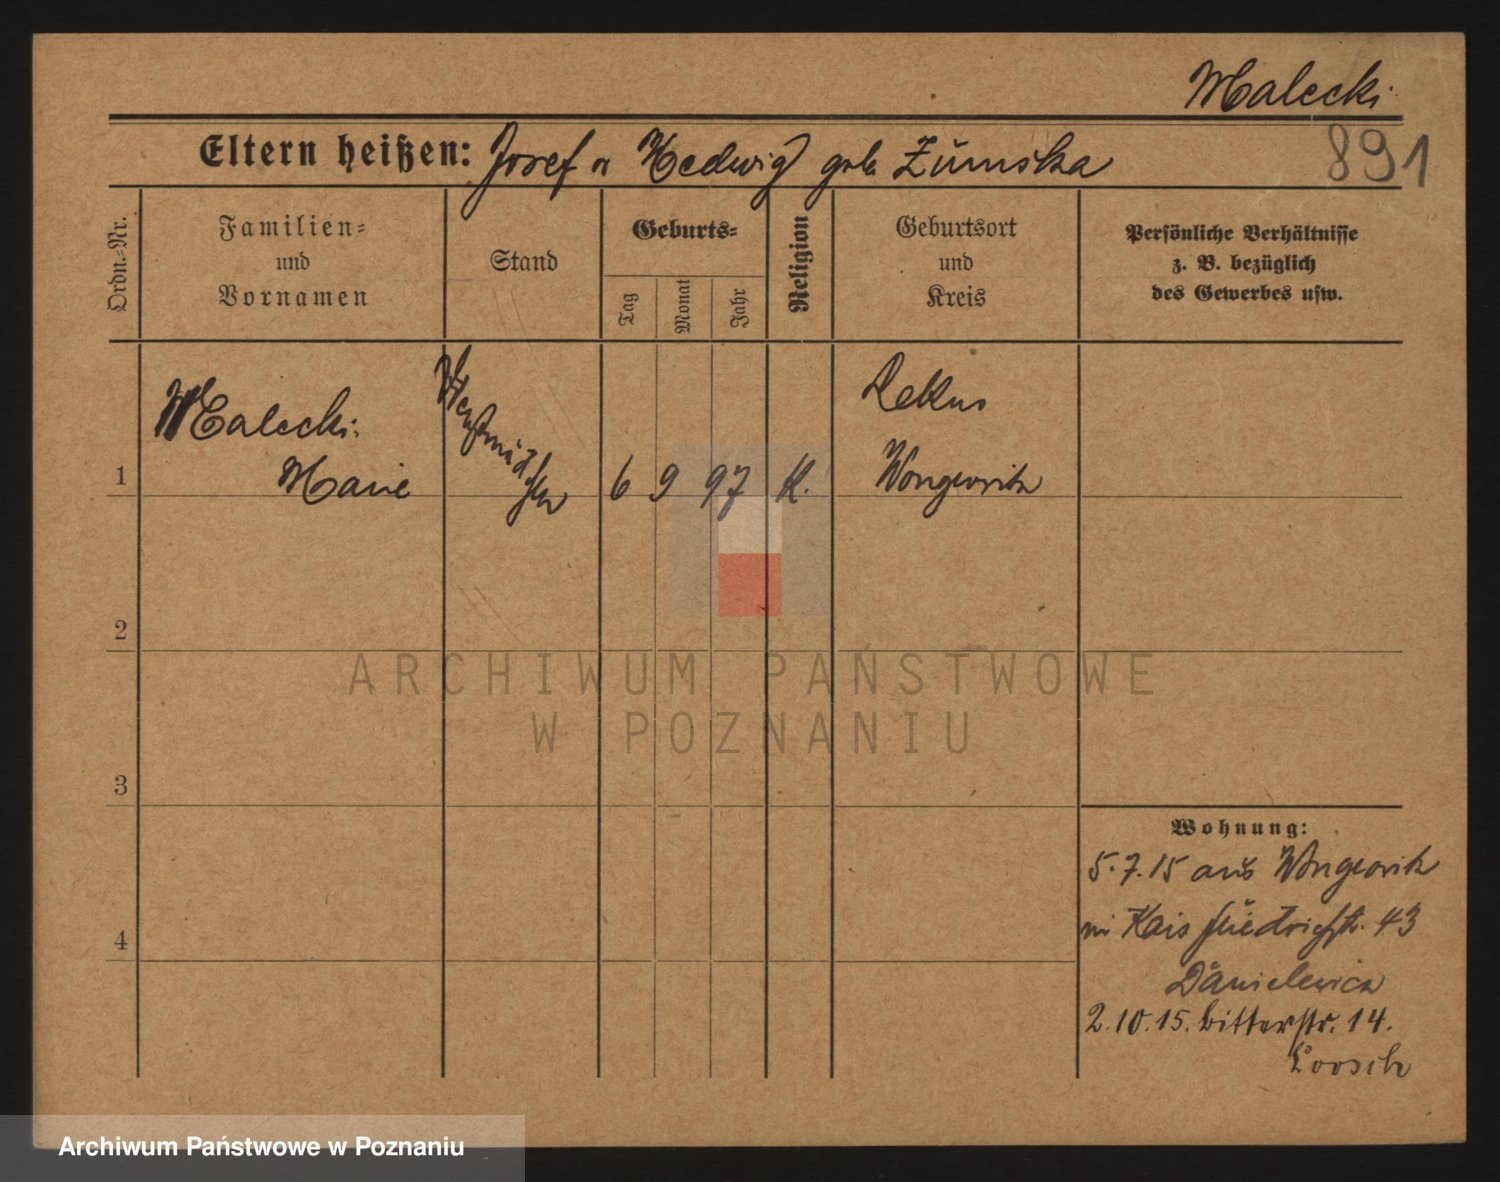 Malecki
Eltern heißen: Josef u Hedwig geb. Zumska
891
Ordn.-Nr.
Familien-
und
Vornamen
Stand
Geburts-
Tag
Monat
Jahr
Religion
Geburtsort
und
Kreis
Persönliche Verhältnisse
z. B. bezüglich
des Gewerbes usw.
Malecki
Marie
1
6 9 97 K.
Lekno
Wongrowitz
2
3
4
ARCHIWUM PAŃSTWOWE
W POZNANIU
Wohnung:
5.7.15 aus Wongrowitz
Kais Friedrichstr. 43
Danielewicz
2.10.15. Ritterstr. 14.
Archiwum Państwowe w Poznaniu